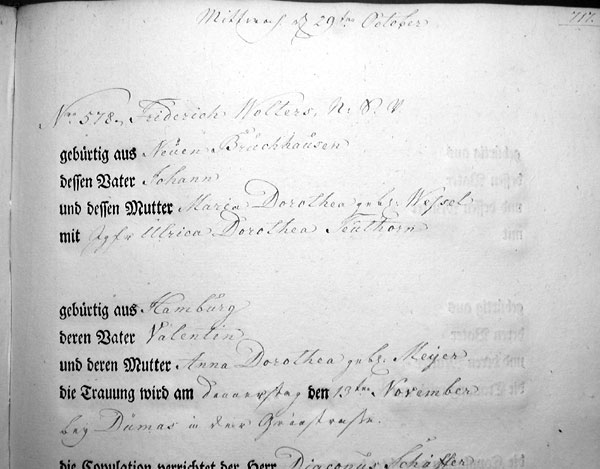 Mittwoch d 29ten October
717.
No 578. Friderich Wolters, N. S. V.
gebürtig aus Neuen Bruchhausen
dessen Vater Johann
und dessen Mutter Maria Dorothea geb: Wessel
mit Jgfr Ulrica Dorothea Teuthorn
gebürtig aus Hamburg
deren Vater Valentin
und deren Mutter Anna Dorothea geb: Meyer
die Trauung wird am Donnerstag den 13ten November
bey Dumas in der
die Copulation verrichtet der Herr Diaconus Schäffer